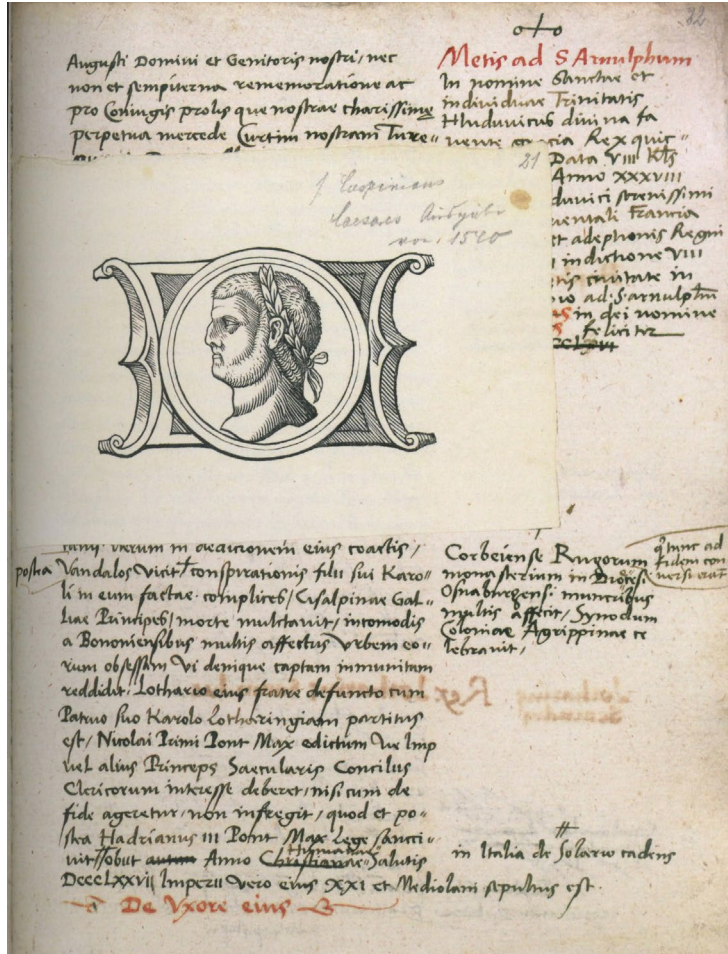 32
Augusti Domini et Genitoris nostri, nec
non et sempiterna rememoratione ac
pro Coniugis prolis que nostrae charissimę
perpetua mercede Curtim nostram Ture-
Metis ad S Arnulphum
In nomine Sanctae et
individuae Trinitatis
Hluduvicus divina fa
vente Rex quic-
Data VIII Kls
Anno XXXVIII
duvici serenissimi
orientali Francia
et adeptionis Regni
indictione VIII
civitate in
ad S arnulphm
in dei nomine
feliciter
21
Caesares
1540
verum in dedicionem eius coactis,
postea
Vandalos vicit, conspirationis filii sui Karo-
li in eum factae complices, Cisalpinae Gal-
liae Principes, morte multavit, incomodis
a Bononiensibus multis affectus Urbem eo-
rum obsessam Vi denique captam inmunitam
reddidit, Lothario eius fratre defuncto cum
Patruo suo Karolo Lotharingiam partitus
est, Nicolai Primi Pont Max edictum Ne Imp
vel alius Princeps Saecularis Conciliis
Clericorum interesse deberet, nisi cum de
fide ageretur, non infregit, quod et po-
stea Hadrianus III Pont Max Lege sanci-
vit, obiit autem Anno Christianae Humanae Salutis
DCCCLXXVII Imperii Vero eius XXI et Mediolani sepultus est.
De Uxore eius
Corbeiense Rugorum
qui tunc ad
fidem con
versi erant
monasterium in Diocesi
Osnaburgensi muneribus
multis affecit, Synodum
Coloniae Agrippinae ce
lebravit,
in Italia de Solario cadens